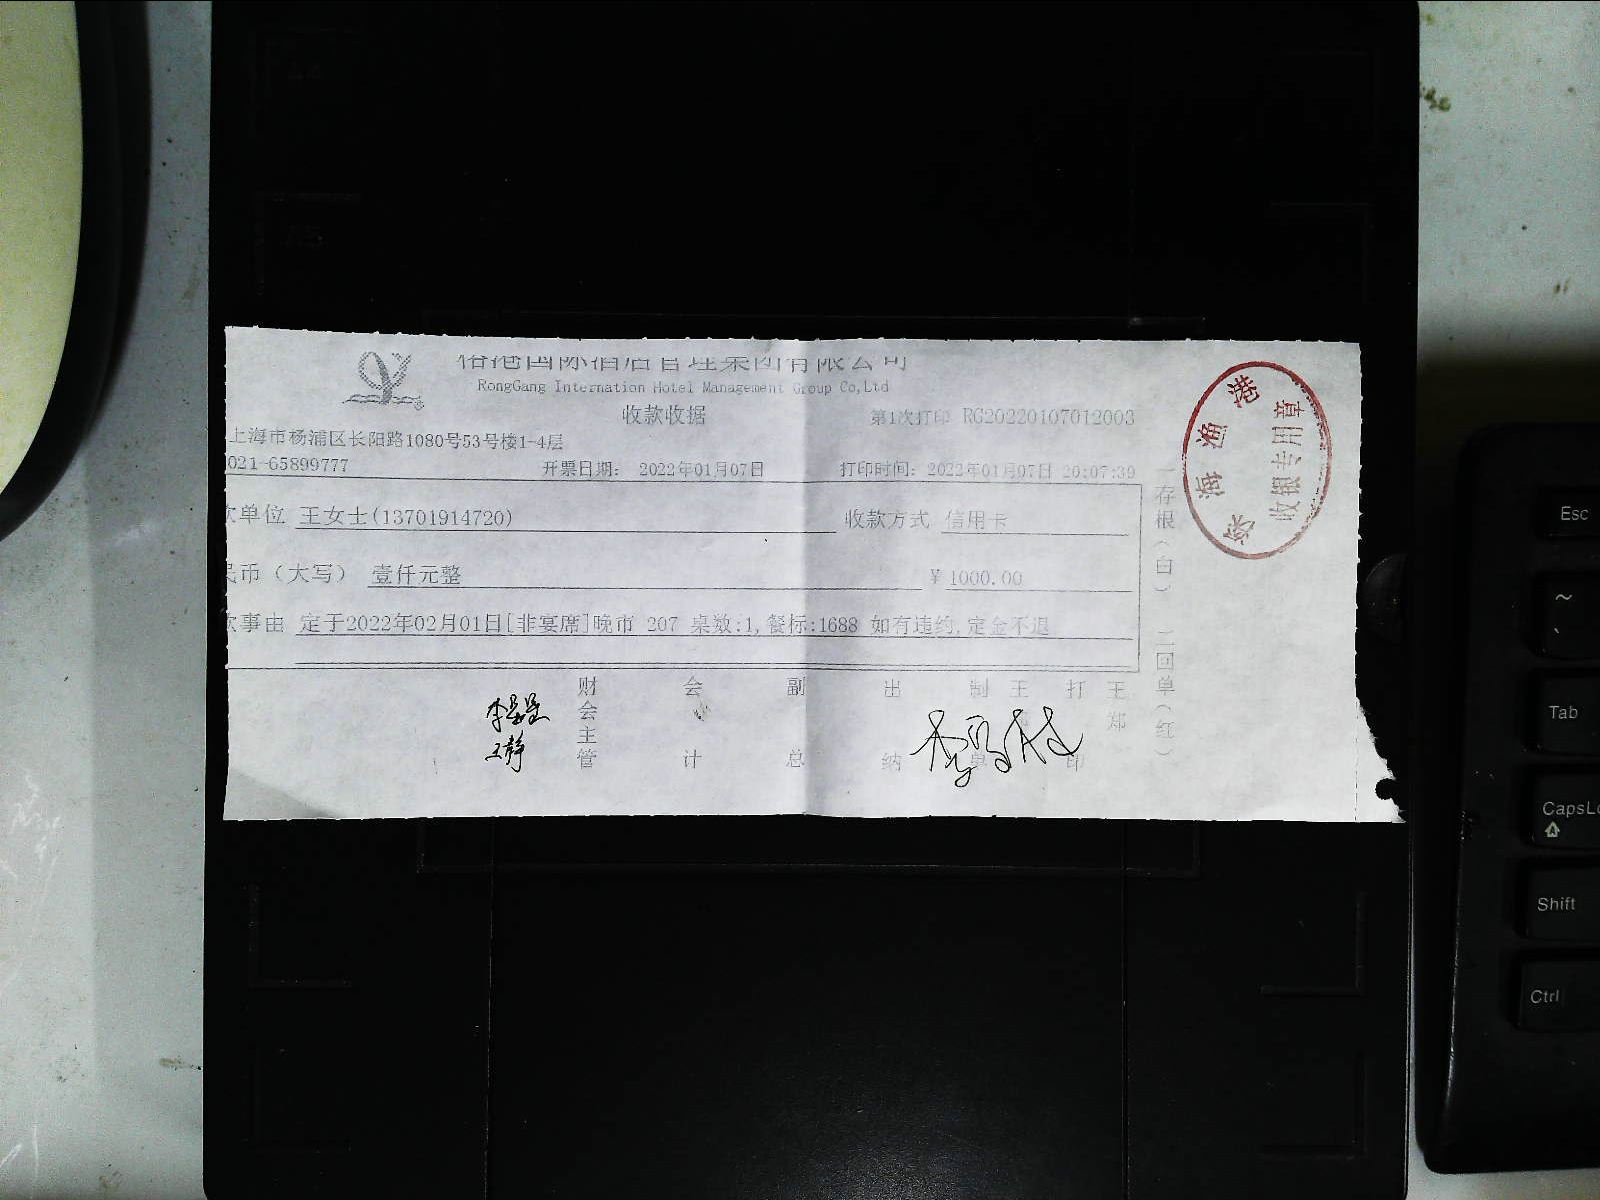 港国际酒店管理集团有限公司
RongGang Internation Hotel Management Group Co,Ltd
收款收据
第1次打印 RG20220107012003
上海市杨浦区长阳路1080号53号楼1-4层
021-65899777 开票日期： 2022年01月07日 打印时间：2022年01月07日 20:07:39
单位 王女士(13701914720) 收款方式 信用卡
民币（大写） 壹仟元整 ¥ 1000.00
事由 定于2022年02月01日[非宴席]晚市 207 桌数:1,餐标:1688 如有违约,定金不退
财会主管 会计 副总 出纳 制单 王 打印 王郑
王静
一存根（白） 二回单（红）
深海渔港
收银专用章
Esc
~
`
Tab
CapsLo
Shift
Ctrl